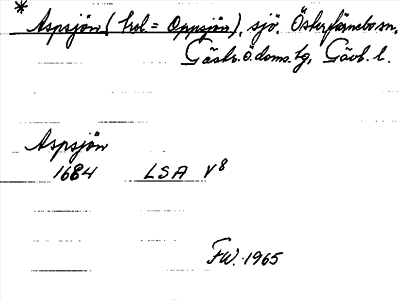 *
Aspsjön (trol = Oppsjön), sjö. Österfärnebo sn,
Gästr. ö. doms. tg, Gävl. l.
Aspsjön
1684 LSA V8
FW. 1965